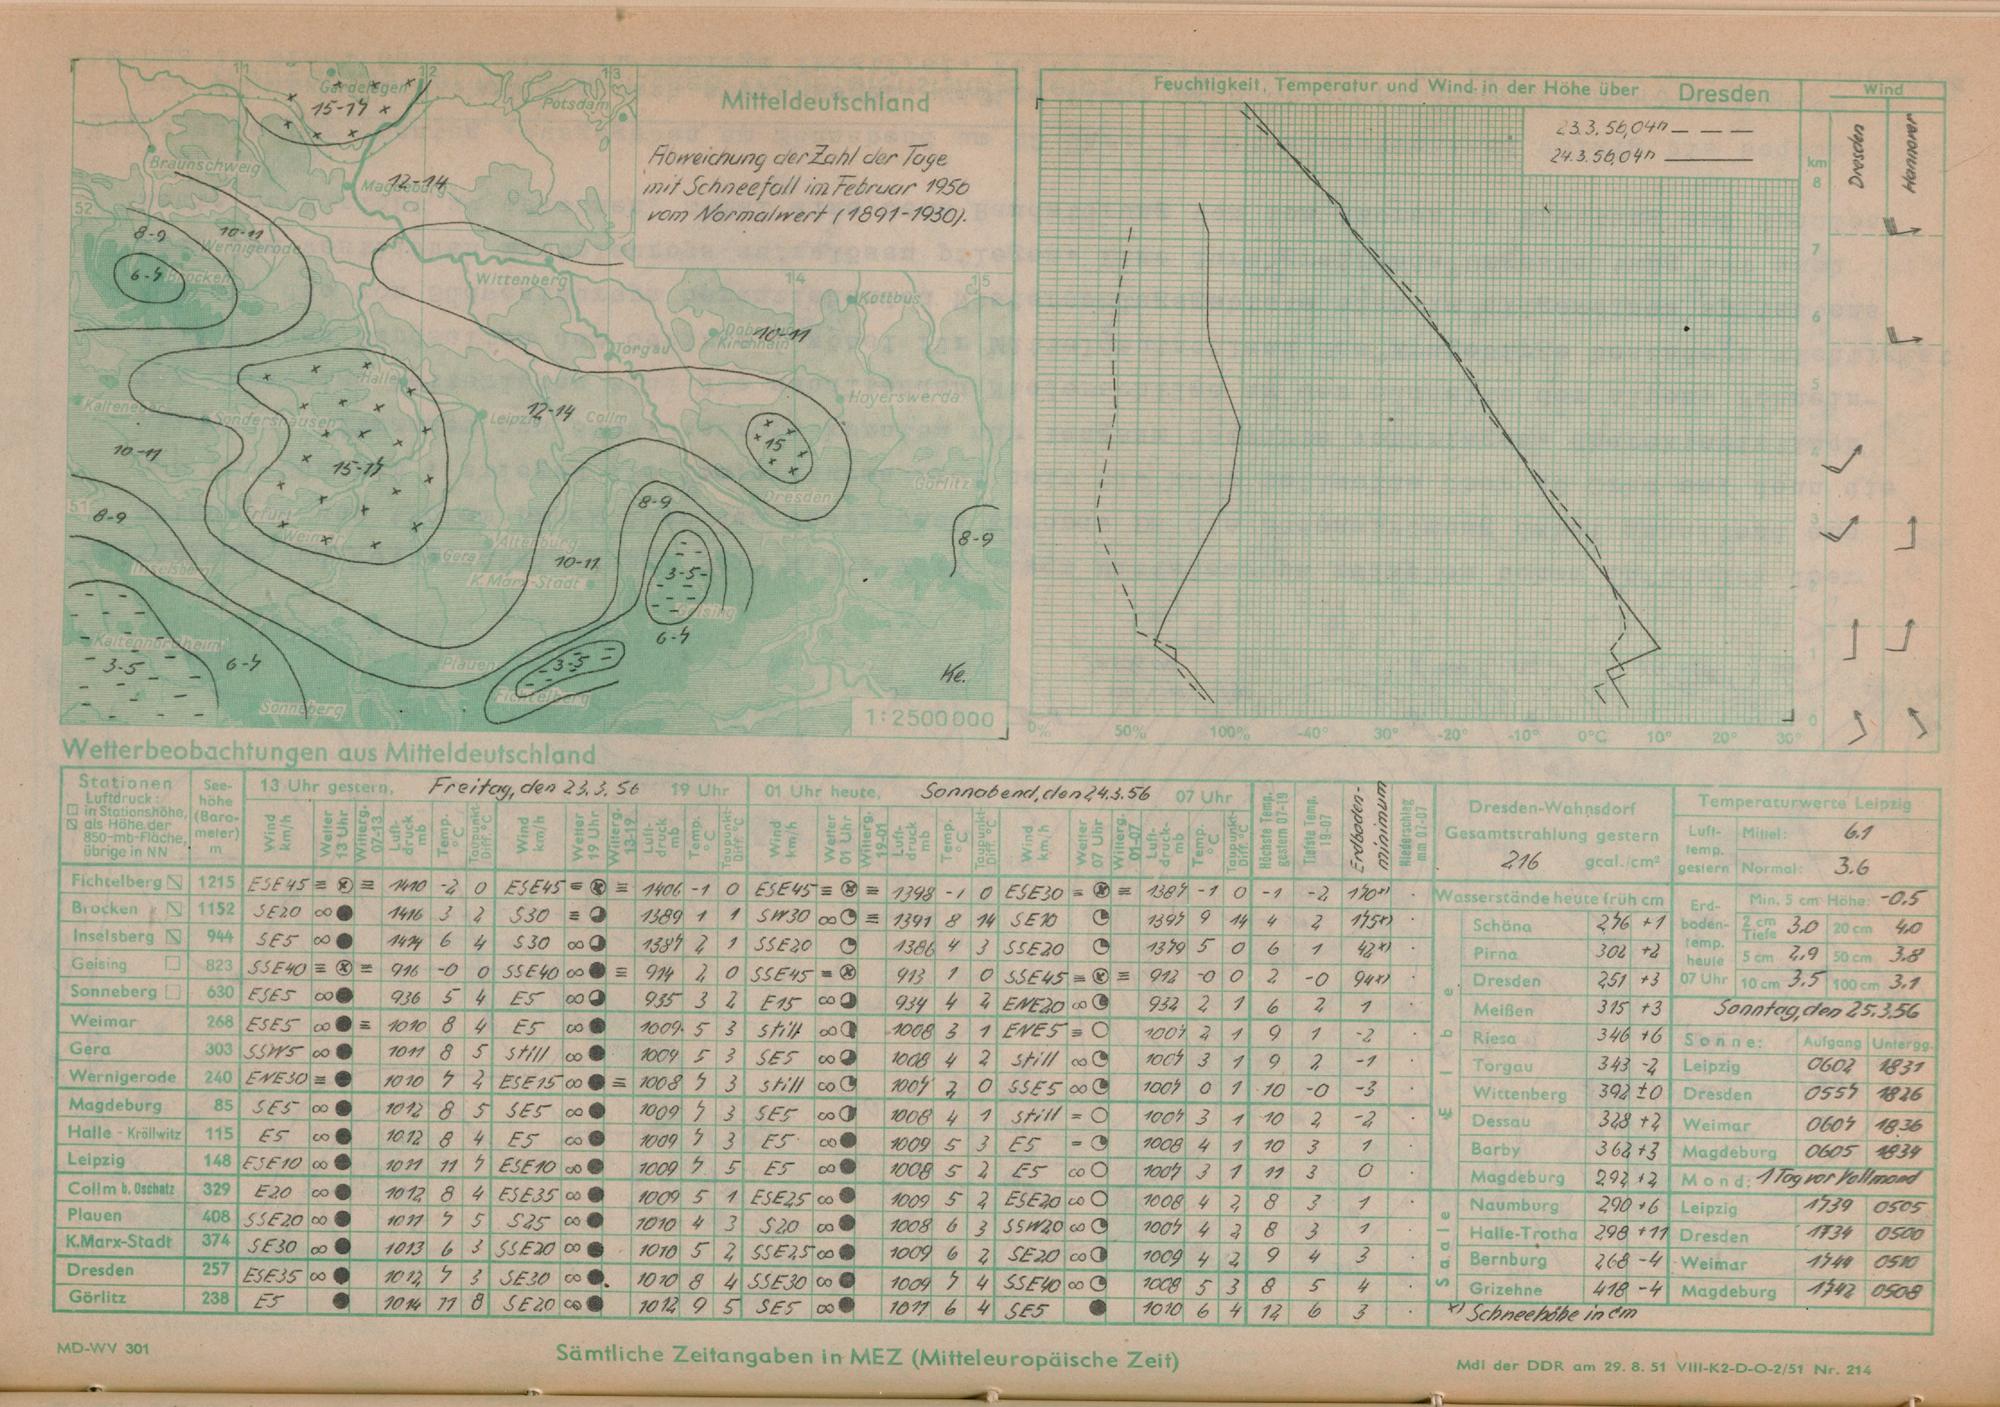 11 12 13
Gardelegen
15-17
Potsdam
Mitteldeutschland
Braunschweig
Magdeburg
12-14
Abweichung der Zahl der Tage
mit Schneefall im Februar 1956
vom Normalwert (1891-1930).
52
8-9
10-11
Wernigerode
6-7 Brocken
Wittenberg
14 15
Kottbus
Torgau
Kirchhein
10-11
Halle
Hoyerswerda
Sondershausen
Leipzig
12-14
Collm
10-11
15
15-17
Görlitz
Dresden
51
8-9
8-9
Erfurt
Weimar
Altenburg
8-9
Gera
10-11
K.Marx-Stadt
3-5
Inselsberg
Geising
6-7
Kaltennordheim
3-5
6-7
Plauen
3-5
Fichtelberg
Ke.
Sonneberg
1:2500000
Feuchtigkeit, Temperatur und Wind in der Höhe über Dresden
Wind
Dresden Hannover
23.3.56,04h
24.3.56,04h
km
8
7
6
5
4
3
2
1
0
0% 50% 100% -40° 30° -20° -10° 0°C 10° 20° 30°
Wetterbeobachtungen aus Mitteldeutschland
Stationen
Luftdruck:
in Stationshöhe,
als Höhe der
850-mb-Fläche,
übrige in NN
See-
höhe
(Baro-
meter)
m
13 Uhr gestern, Freitag, den 23.3.56 19 Uhr 01 Uhr heute, Sonnabend, den 24.3.56 07 Uhr
Wind km/h Wetter 13 Uhr Witterg. 07-13 Luft-druck mb Temp. °C Taupunkt-Diff. °C Wind km/h Wetter 19 Uhr Witterg. 13-19 Luft-druck mb Temp. °C Taupunkt-Diff. °C Wind km/h Wetter 01 Uhr Witterg. 19-01 Luft-druck mb Temp. °C Taupunkt-Diff. °C Wind km/h Wetter 07 Uhr Witterg. 01-07 Luft-druck mb Temp. °C Taupunkt-Diff. °C Höchste Temp. gestern 07-19 Tiefste Temp. 19-07 Erdboden-minimum Niederschlag mm 07-07
Fichtelberg 1215 ESE45 ≡ ≡ 1410 -2 0 ESE45 ≡ ≡ 1406 -1 0 ESE45 ≡ ≡ 1398 -1 0 ESE30 ≡ ≡ 1387 -1 0 -1 -2 170x) .
Brocken 1152 SE20 ∞ 1416 3 2 S30 ≡ 1389 1 1 SW30 ∞ ≡ 1391 8 14 SE10 1397 9 14 4 2 175x) .
Inselsberg 944 SE5 ∞ 1414 6 4 S30 ∞ 1387 2 1 SSE20 1386 4 3 SSE20 1379 5 0 6 1 42x) .
Geising 823 SSE40 ≡ ≡ 916 -0 0 SSE40 ∞ ≡ 914 2 0 SSE45 = 913 1 0 SSE45 = ≡ 912 -0 0 2 -0 94x) .
Sonneberg 630 ESE5 ∞ 936 5 4 E5 ∞ 935 3 2 E15 ∞ 934 4 2 ENE20 ∞ 932 2 1 6 2 1 .
Weimar 268 ESE5 ∞ ≡ 1010 8 4 E5 ∞ 1009 5 3 still ∞ 1008 3 1 ENE5 ≡ 1007 2 1 9 1 -2 .
Gera 303 SSW5 ∞ 1011 8 5 still ∞ 1009 5 3 SE5 ∞ 1008 4 2 still ∞ 1007 3 1 9 2 -1 .
Wernigerode 240 ENE30 ≡ 1010 7 2 ESE15 ∞ ≡ 1008 7 3 still ∞ 1007 2 0 SSE5 ∞ 1007 0 1 10 -0 -3 .
Magdeburg 85 SE5 ∞ 1012 8 5 SE5 ∞ 1009 7 3 SE5 ∞ 1008 4 1 still = 1007 3 1 10 2 -2 .
Halle - Kröllwitz 115 E5 ∞ 1012 8 4 E5 ∞ 1009 7 3 E5 ∞ 1009 5 3 E5 = 1008 4 1 10 3 1 .
Leipzig 148 ESE10 ∞ 1011 11 7 ESE10 ∞ 1009 7 5 E5 ∞ 1008 5 2 E5 ∞ 1007 3 1 11 3 0 .
Collm b. Oschatz 329 E20 ∞ 1012 8 4 ESE35 ∞ 1009 5 1 ESE25 ∞ 1009 5 2 ESE20 ∞ 1008 4 2 8 3 1 .
Plauen 408 SSE20 ∞ 1011 7 5 S25 ∞ 1010 4 3 S20 ∞ 1008 6 3 SSW20 ∞ 1007 4 2 8 3 1 .
K.Marx-Stadt 374 SE30 ∞ 1013 6 3 SSE20 ∞ 1010 5 2 SSE25 ∞ 1009 6 2 SE20 ∞ 1009 4 2 9 4 3 .
Dresden 257 ESE35 ∞ 1012 7 3 SE30 ∞ 1010 8 4 SSE30 ∞ 1009 7 4 SSE40 ∞ 1008 5 3 8 5 4 .
Görlitz 238 E5 1014 11 8 SE20 ∞ 1012 9 5 SE5 ∞ 1011 6 4 SE5 1010 6 4 12 6 3 .
Dresden-Wahnsdorf
Gesamtstrahlung gestern
216 gcal./cm²
Wasserstände heute früh cm
Elbe
Schöna 276 +1
Pirna 302 +2
Dresden 251 +3
Meißen 315 +3
Riesa 346 +6
Torgau 343 -2
Wittenberg 392 ±0
Dessau 328 +2
Barby 362 +3
Magdeburg 292 +2
Saale
Naumburg 290 +6
Halle-Trotha 298 +11
Bernburg 268 -4
Grizehne 418 -4
x) Schneehöhe in cm
Temperaturwerte Leipzig
Luft-temp. gestern Mittel: 6.1
Normal: 3.6
Erd-boden-temp. heute 07 Uhr
Min. 5 cm Höhe: -0.5
2 cm Tiefe 3.0 20 cm 4.0
5 cm 2.9 50 cm 3.8
10 cm 3.5 100 cm 3.1
Sonntag, den 25.3.56
Sonne: Aufgang Untergg.
Leipzig 0602 1831
Dresden 0557 1826
Weimar 0607 1836
Magdeburg 0605 1834
Mond: 1 Tag vor Vollmond
Leipzig 1739 0505
Dresden 1734 0500
Weimar 1744 0510
Magdeburg 1742 0508
MD-WV 301
Sämtliche Zeitangaben in MEZ (Mitteleuropäische Zeit)
MdI der DDR am 29. 8. 51 VIII-K2-D-O-2/51 Nr. 214